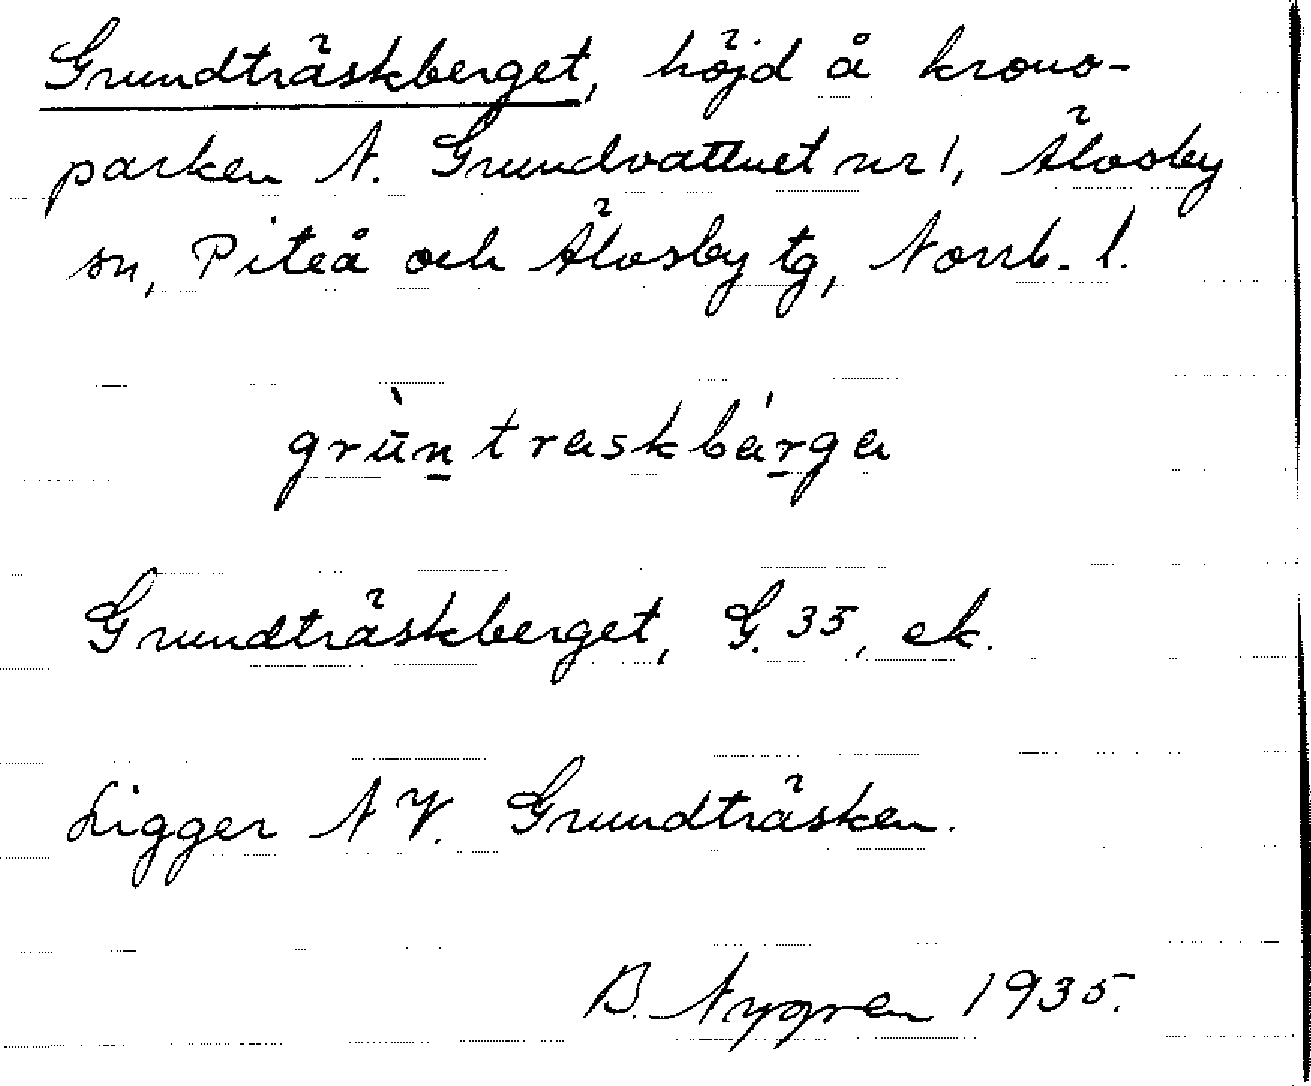 Grundträskberget, höjd å krono-
parken N. Grundvattnet nr 1, Älvsby
sn, Piteå och Älvsby tg, Norrb. l.
grùn̲traskbár̲ga
Grundträskberget, G. 35, ek.
Ligger N V. Grundträsken.
B. Nygren 1935.